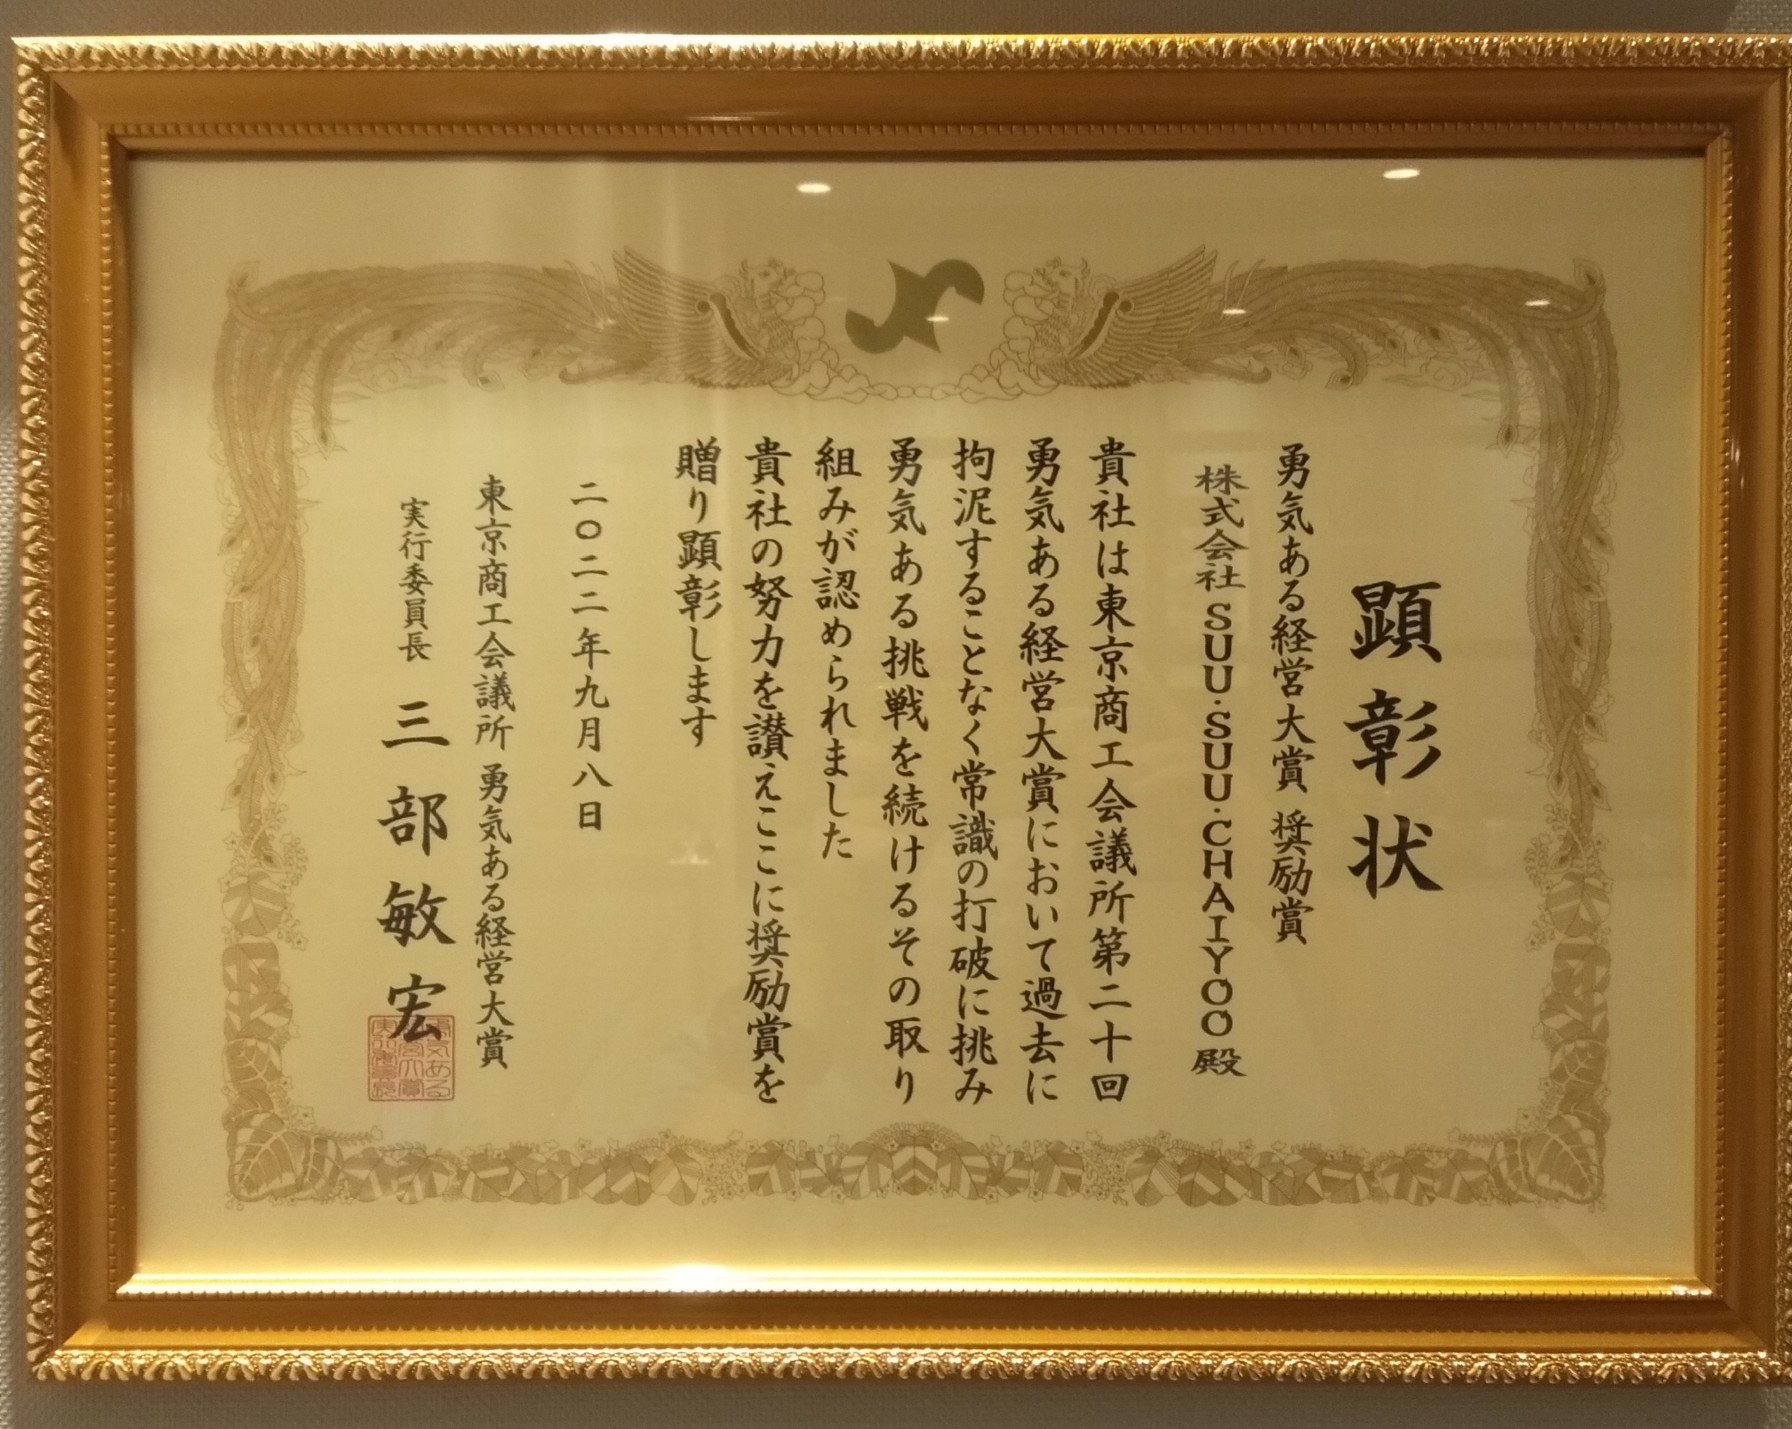 顕彰状
勇気ある経営大賞 奨励賞
株式会社 SUU・SUU・CHAIYOO 殿
貴社は東京商工会議所第二十回
勇気ある経営大賞において過去に
拘泥することなく常識の打破に挑み
勇気ある挑戦を続けるその取り
組みが認められました
貴社の努力を讃えここに奨励賞を
贈り顕彰します
二〇二二年九月八日
東京商工会議所 勇気ある経営大賞
実行委員長 三部敏宏